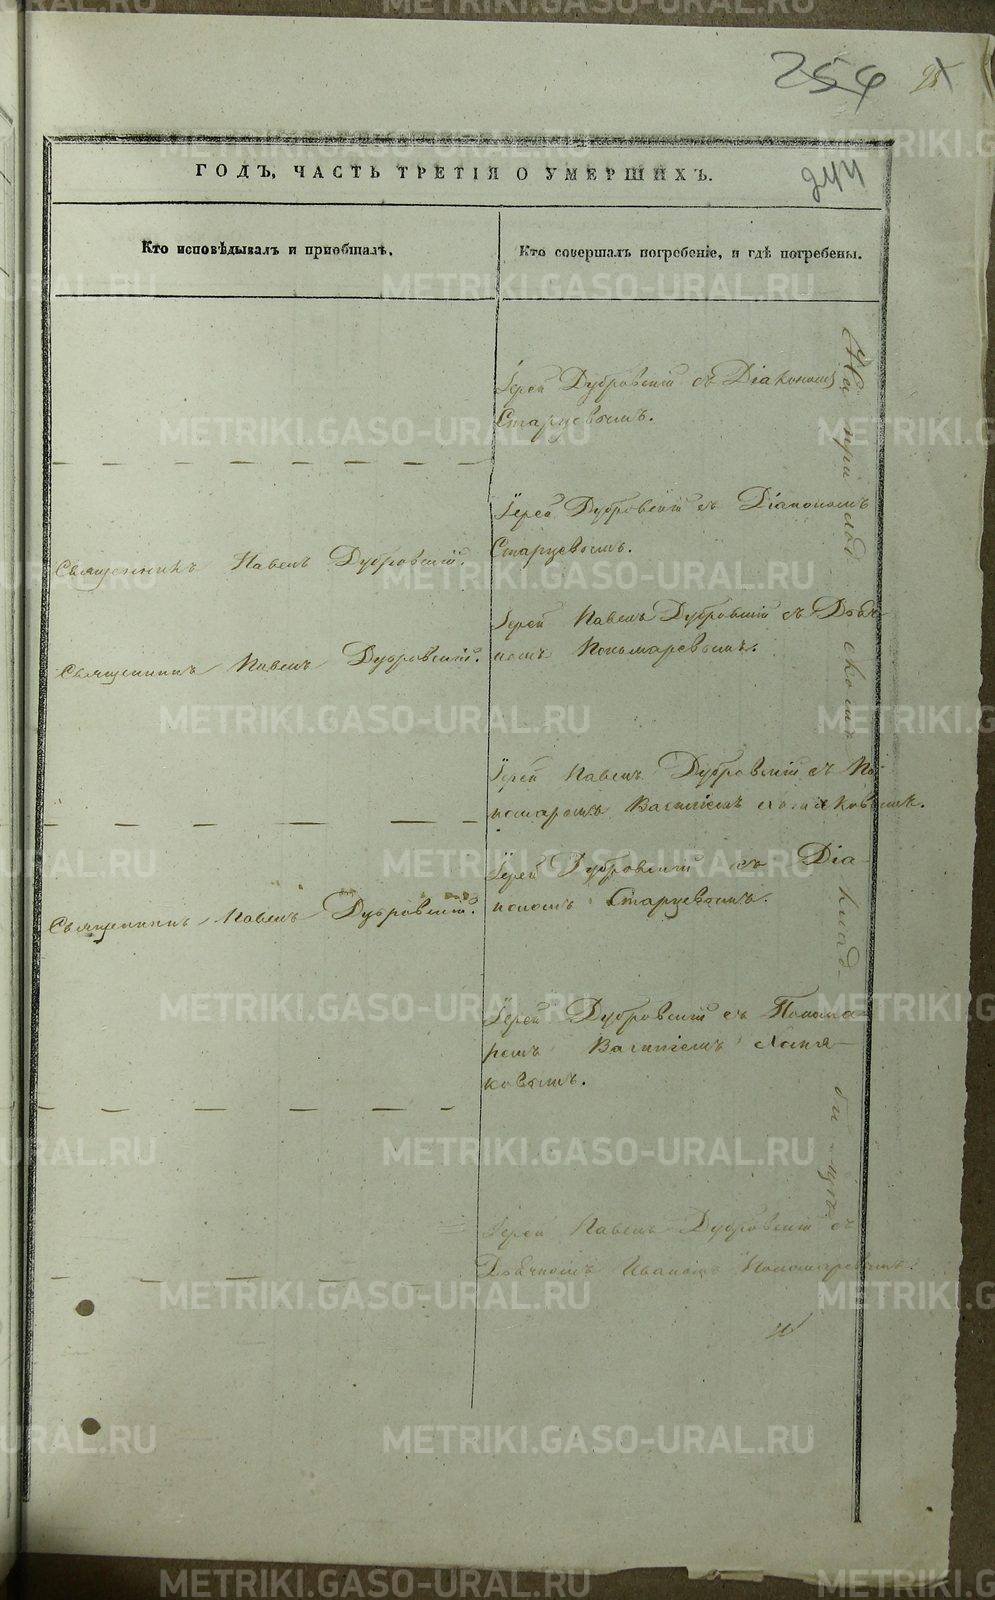 254
244
ГОДЪ, ЧАСТЬ ТРЕТІЯ О УМЕРШИХЪ.
Кто исповѣдывалъ и пріобщалъ.
Кто совершалъ погребеніе, и гдѣ погребены.
Іерей Дубровскій съ Діакономъ
Старцевымъ.
Священникъ Павелъ Дубровскій.
Іерей Дубровскій съ Діакономъ
Старцевымъ.
Священникъ Павелъ Дубровскій.
Іерей Павелъ Дубровскій съ Дьяч-
комъ Пономаревымъ.
Іерей Павелъ Дубровскій съ По-
номаремъ Василіемъ
Священникъ Павелъ Дубровскій.
Іерей Дубровскій съ Діа-
кономъ Старцевымъ.
Іерей Дубровскій съ Понома-
ремъ Василіемъ
ковымъ.
Іерей Павелъ Дубровскій съ
Дьячкомъ Иваномъ Пономаревымъ.
На при ход скомъ клад би щѣ
METRIKI.GASO-URAL.RU